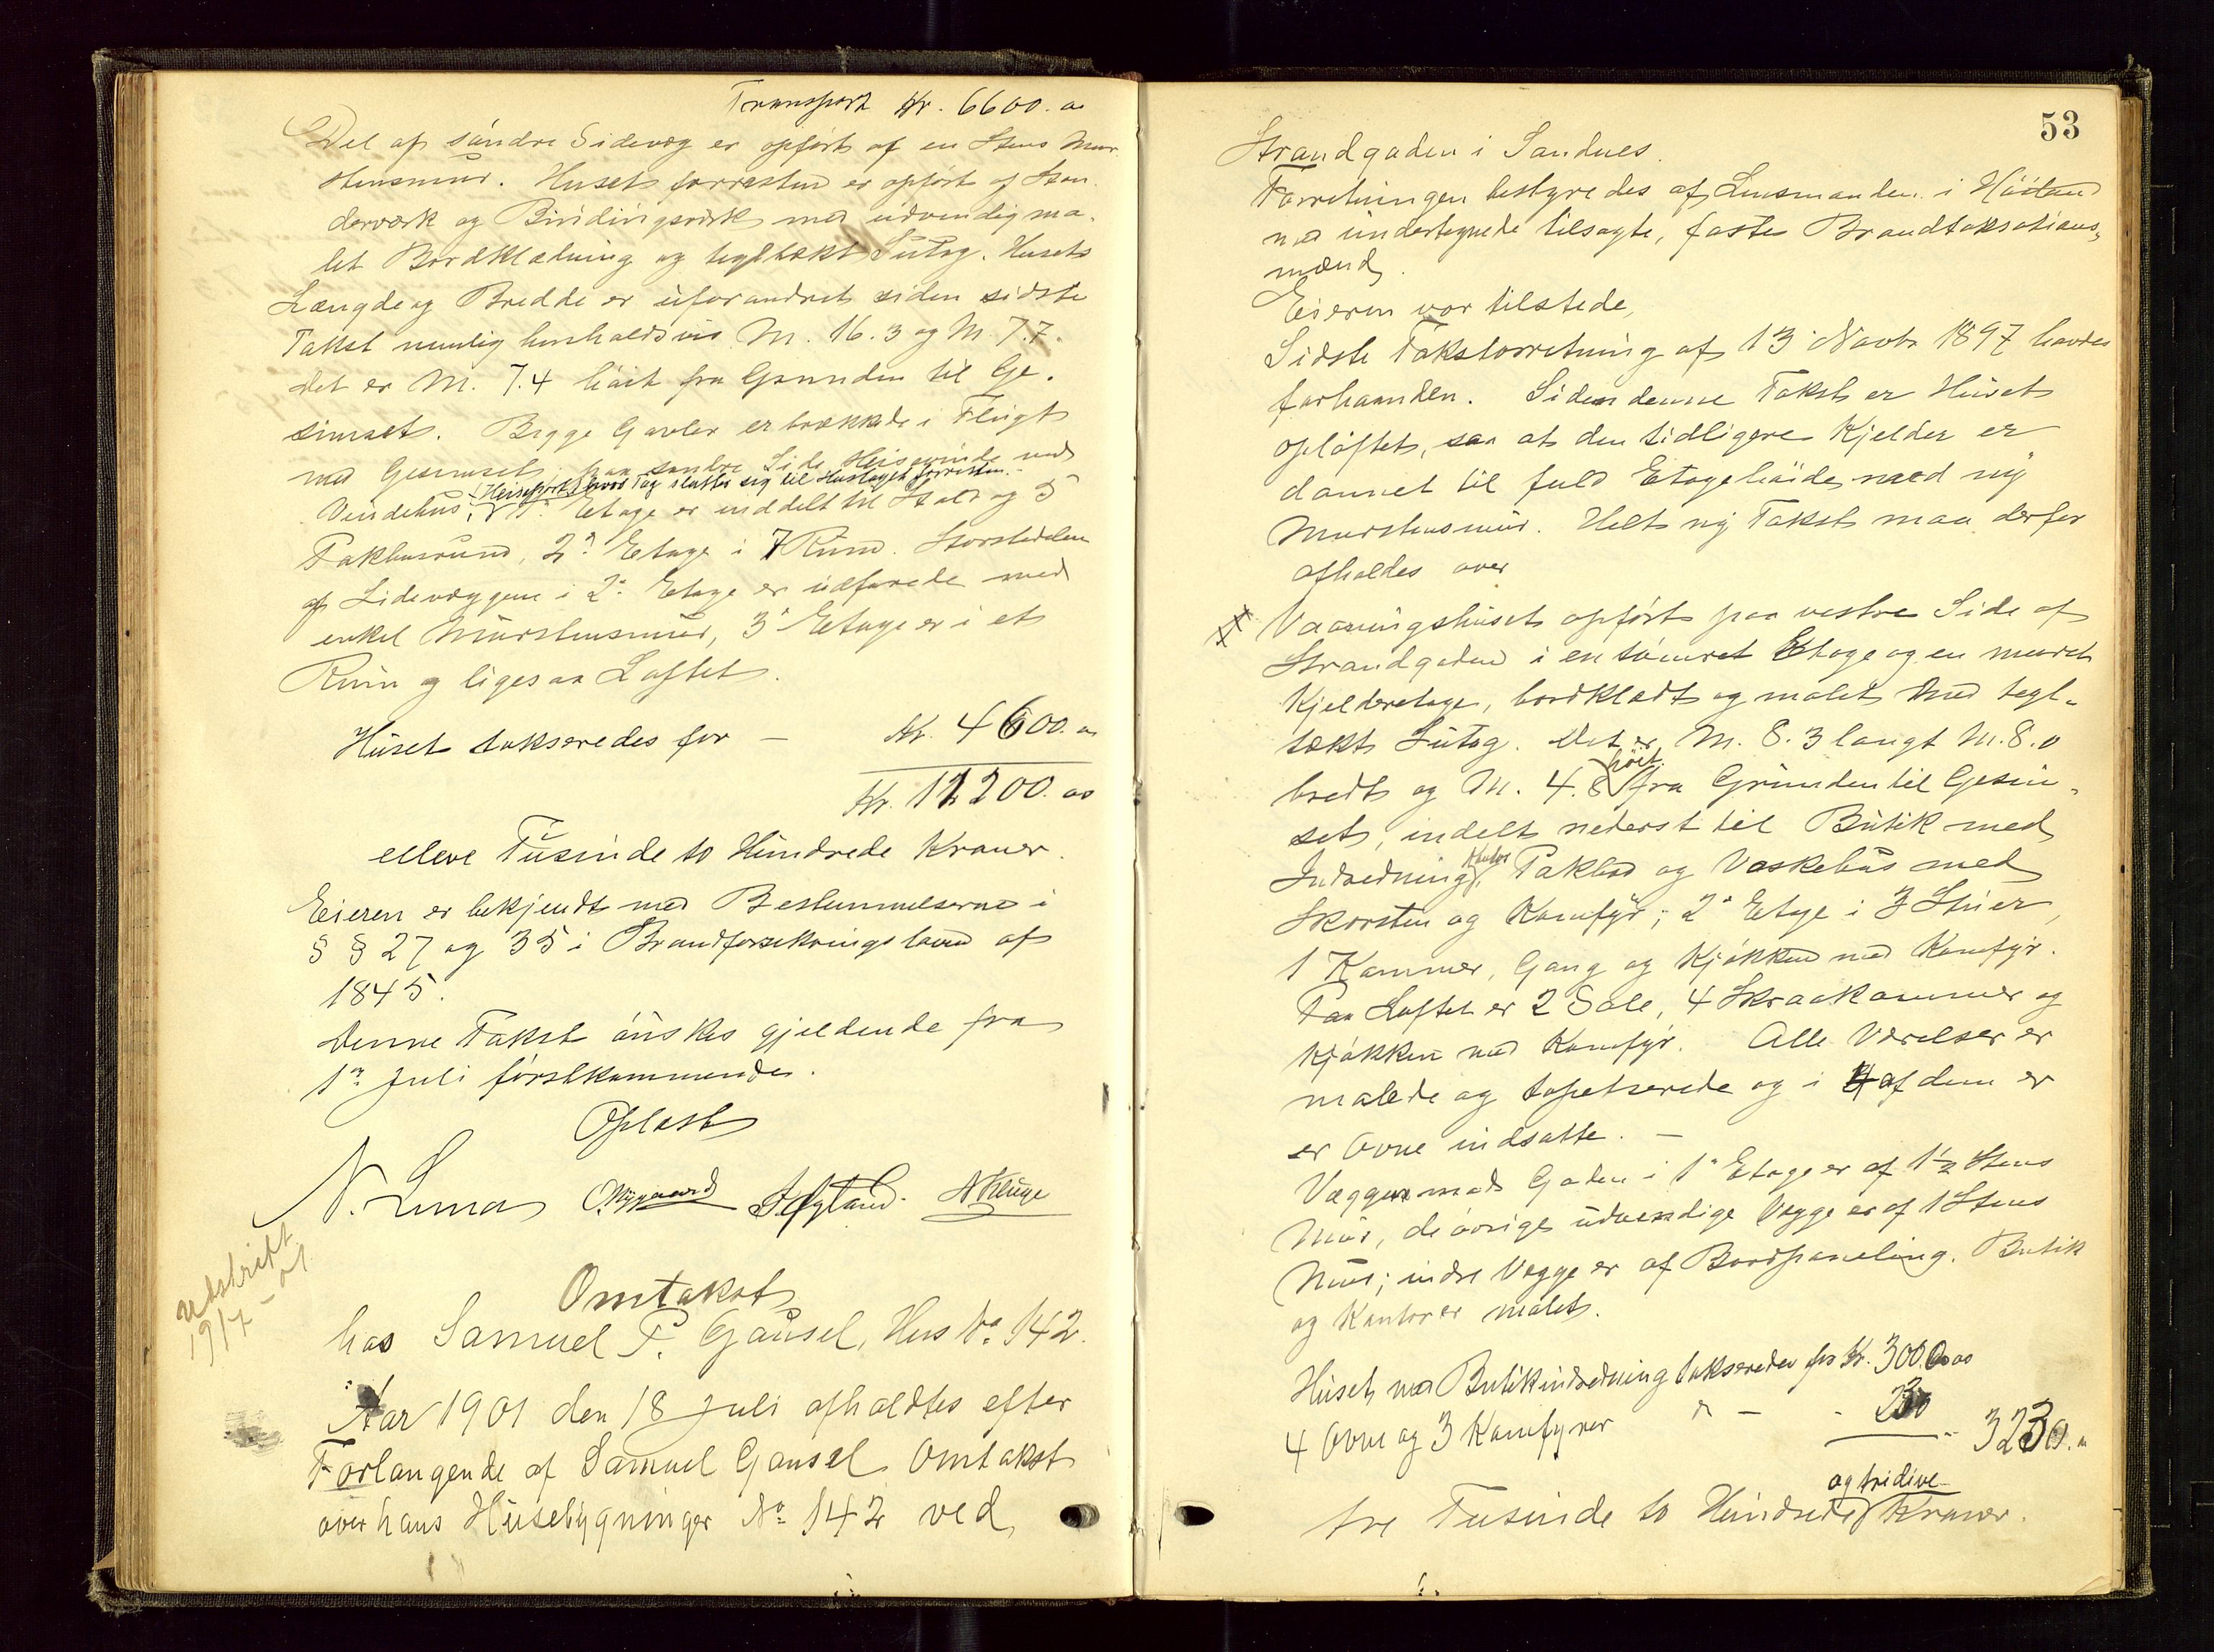 Transport Kr. 6600.00
Del af søndre Sidevæg er opført af en Stens Mur-
stensmur. Husets forresten er opført af Stan-
derværk og Bindingsværk med udvendig ma-
let Bordklædning og teglhækt Sutag. Husets
Længde og Bredde er uforandret siden sidste
Takst nemlig henholdsvis M. 16.3 og M. 7.7.
Det er M. 7.4 høit fra Grunden til Ge-
simset. Begge Gavler er trækkede i Flugt
med Gesimset, paa søndre Side Heisevinde med
(Heiseport) hvors Tag slutter sig til Hustaget forresten.
Vindehus, 1ste Etage er inddelt til Stald og 5
Pakhusrum, 2den Etage i 7 Rum. Størstedelen
af Sidevæggene i 2den Etage er udforede med
enkel Murstensmur, 3die Etage er i et
Rum og ligesaa Loftet.
Huset takseredes for — Kr. 4600.00
Kr. 11200.00
elleve Tusinde to Hundrede Kroner.
Eieren er bekjendt med Bestemmelserne i
§ § 27 og 35 i Brandforsikringsloven af
1845.
Denne Takst ønskes gjeldende fra
1ste Juli førstkommende.
Oplæst
N. Lima O. Nygaard S. Hgland. N Kluge
Udskrift
19/7 - 01
Omtakst
hos Samuel P. Gausel, Hus No 142.
Aar 1901 den 18 Juli afholdtes efter
Forlangende af Samuel Gausel Omtakst
over hans Husebygninger No 142 ved
53
Strandgaden i Sandnes.
Forretningen bestyredes af Lensmanden i Høiland
med undertegnede tilsagte, faste Brandtaksations-
mænd.
Eieren var tilstede,
Sidste Takstforretning af 13 Novbr 1897 havdes
forhaanden. Siden denne Takst er Huset
opløftet, saa at den tidligere Kjelder er
dannet til fuld Etagehøide med ny
Murstensmur. Helt ny Takst maa derfor
afholdes over
Vaaningshuset opført paa vestre Side af
Strandgaden i en tømret Etage og en muret
Kjelderetage, bordklædt og malet med tegl-
tækt Sutag. Det er M. 8.3 langt M. 8.0
bredt og M. 4.8 høit fra Grunden til Gesim-
set, indelt nederst til Butik med
Indredning, Kontor Pakbod og Vaskehus med
Skorsten og Komfyr; 2den Etage i 3 Stuer,
1 Kammer, Gang og Kjøkken med Komfyr.
Paa Loftet er 2 Sale, 4 Skraakammer og
Kjøkken med Komfyr. Alle Værelser er
malede og tapetserede og i 4 af dem er
er Ovne indsatte. —
Væggen mod Gaden i 1ste Etage er af 1½ Stens
Mur, de øvrige udvendige Vægge er af 1 Stens
Mur; indre Vægge er af Bordpaneling. Butik
og Kontor er malet.
Huset med Butikindredning takseredes for Kr. 3000.00
4 Ovne og 3 Komfyrer " — - 230 - 3230.00
tre Tusinde to Hundrede og tridive Kroner.